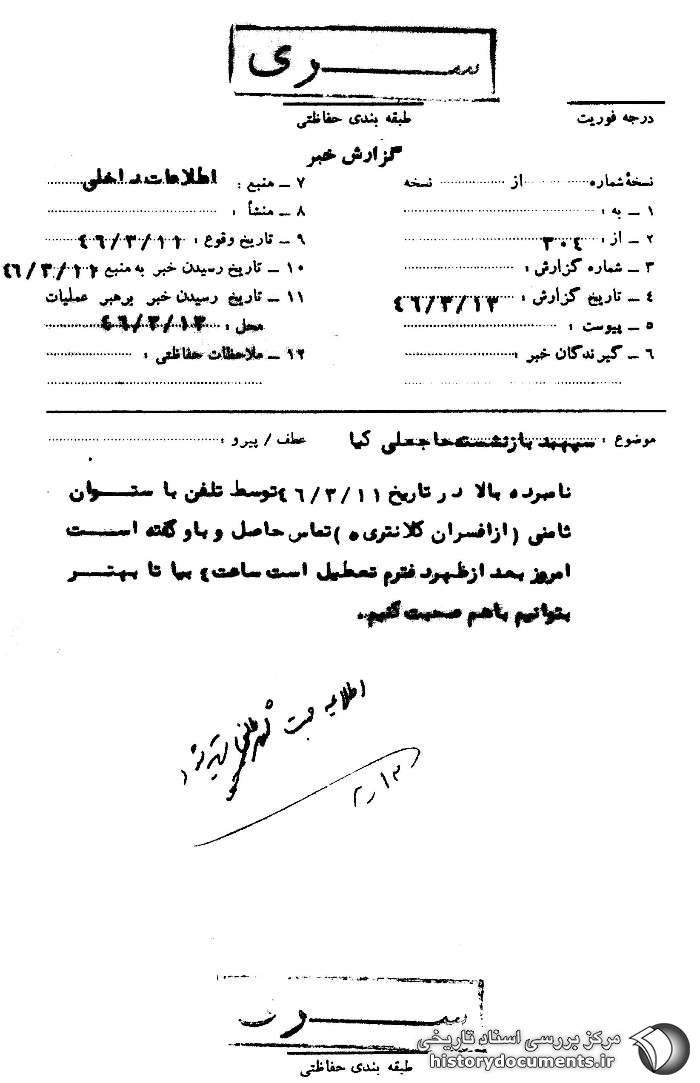 سری
طبقه بندی حفاظتی
درجه فوریت
گزارش خبر
نسخهٔ شماره از نسخه
۱ ـ به :
۲ ـ از : ۳۰۴
۳ ـ شماره گزارش :
۴ ـ تاریخ گزارش : ۴۶/۳/۱۳
۵ ـ پیوست :
۶ ـ گیرندگان خبر :
۷ ـ منبع : اطلاعات داخلی
۸ ـ منشأ :
۹ ـ تاریخ وقوع : ۴۶/۳/۱۱
۱۰ ـ تاریخ رسیدن خبر به منبع ۴۶/۳/۱۱
۱۱ ـ تاریخ رسیدن خبر برهبر عملیات
محل : ۴۶/۳/۱۳
۱۲ ـ ملاحظات حفاظتی :
موضوع : سپهبد بازنشسته حاجعلی کیا
عطف / پیرو :
نامبرده بالا در تاریخ ۴۶/۳/۱۱ توسط تلفن با ستوان
ثامنی (از افسران کلانتری ۵) تماس حاصل و باو گفته است
امروز بعد از ظهر دفترم تعطیل است ساعت ۴ بیا تا بهتر
بتوانیم باهم صحبت کنیم.
اطلاعیه جهت
سری
طبقه بندی حفاظتی
مرکز بررسی اسناد تاریخی
historydocuments.ir